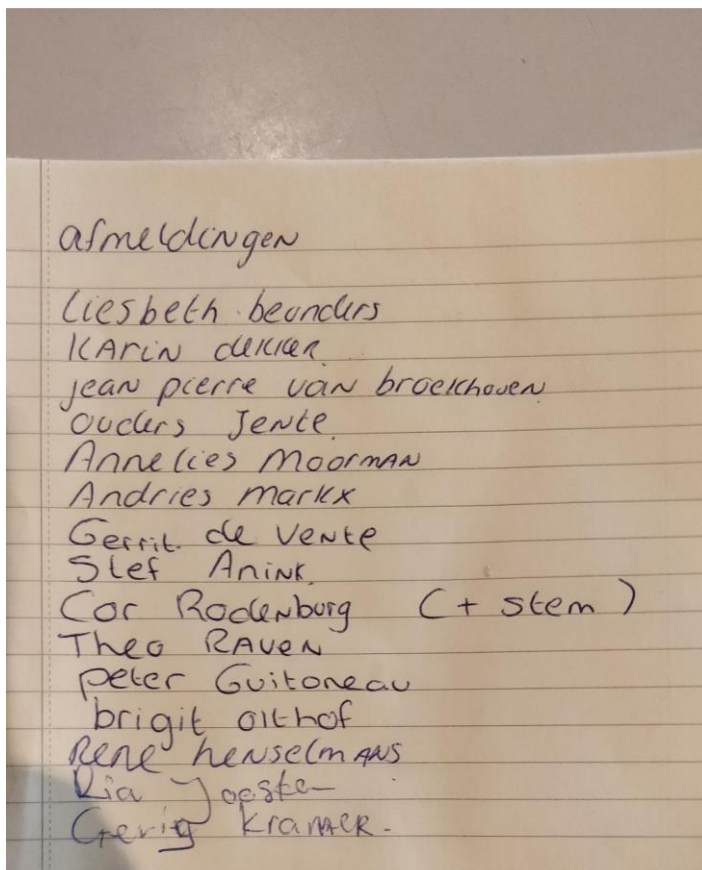 afmeldingen
Liesbeth beunders
KARIN dekker
jean pierre van broekhoven
ouders Jente
Annelies MoormAN
Andries markx
Gerrit. de Vente
Stef Anink.
Cor Rodenburg (+ stem)
Theo RAVEN
peter Guitoneau
brigit olthof
Rene henselmANS
Ria Joosten
Kramer.